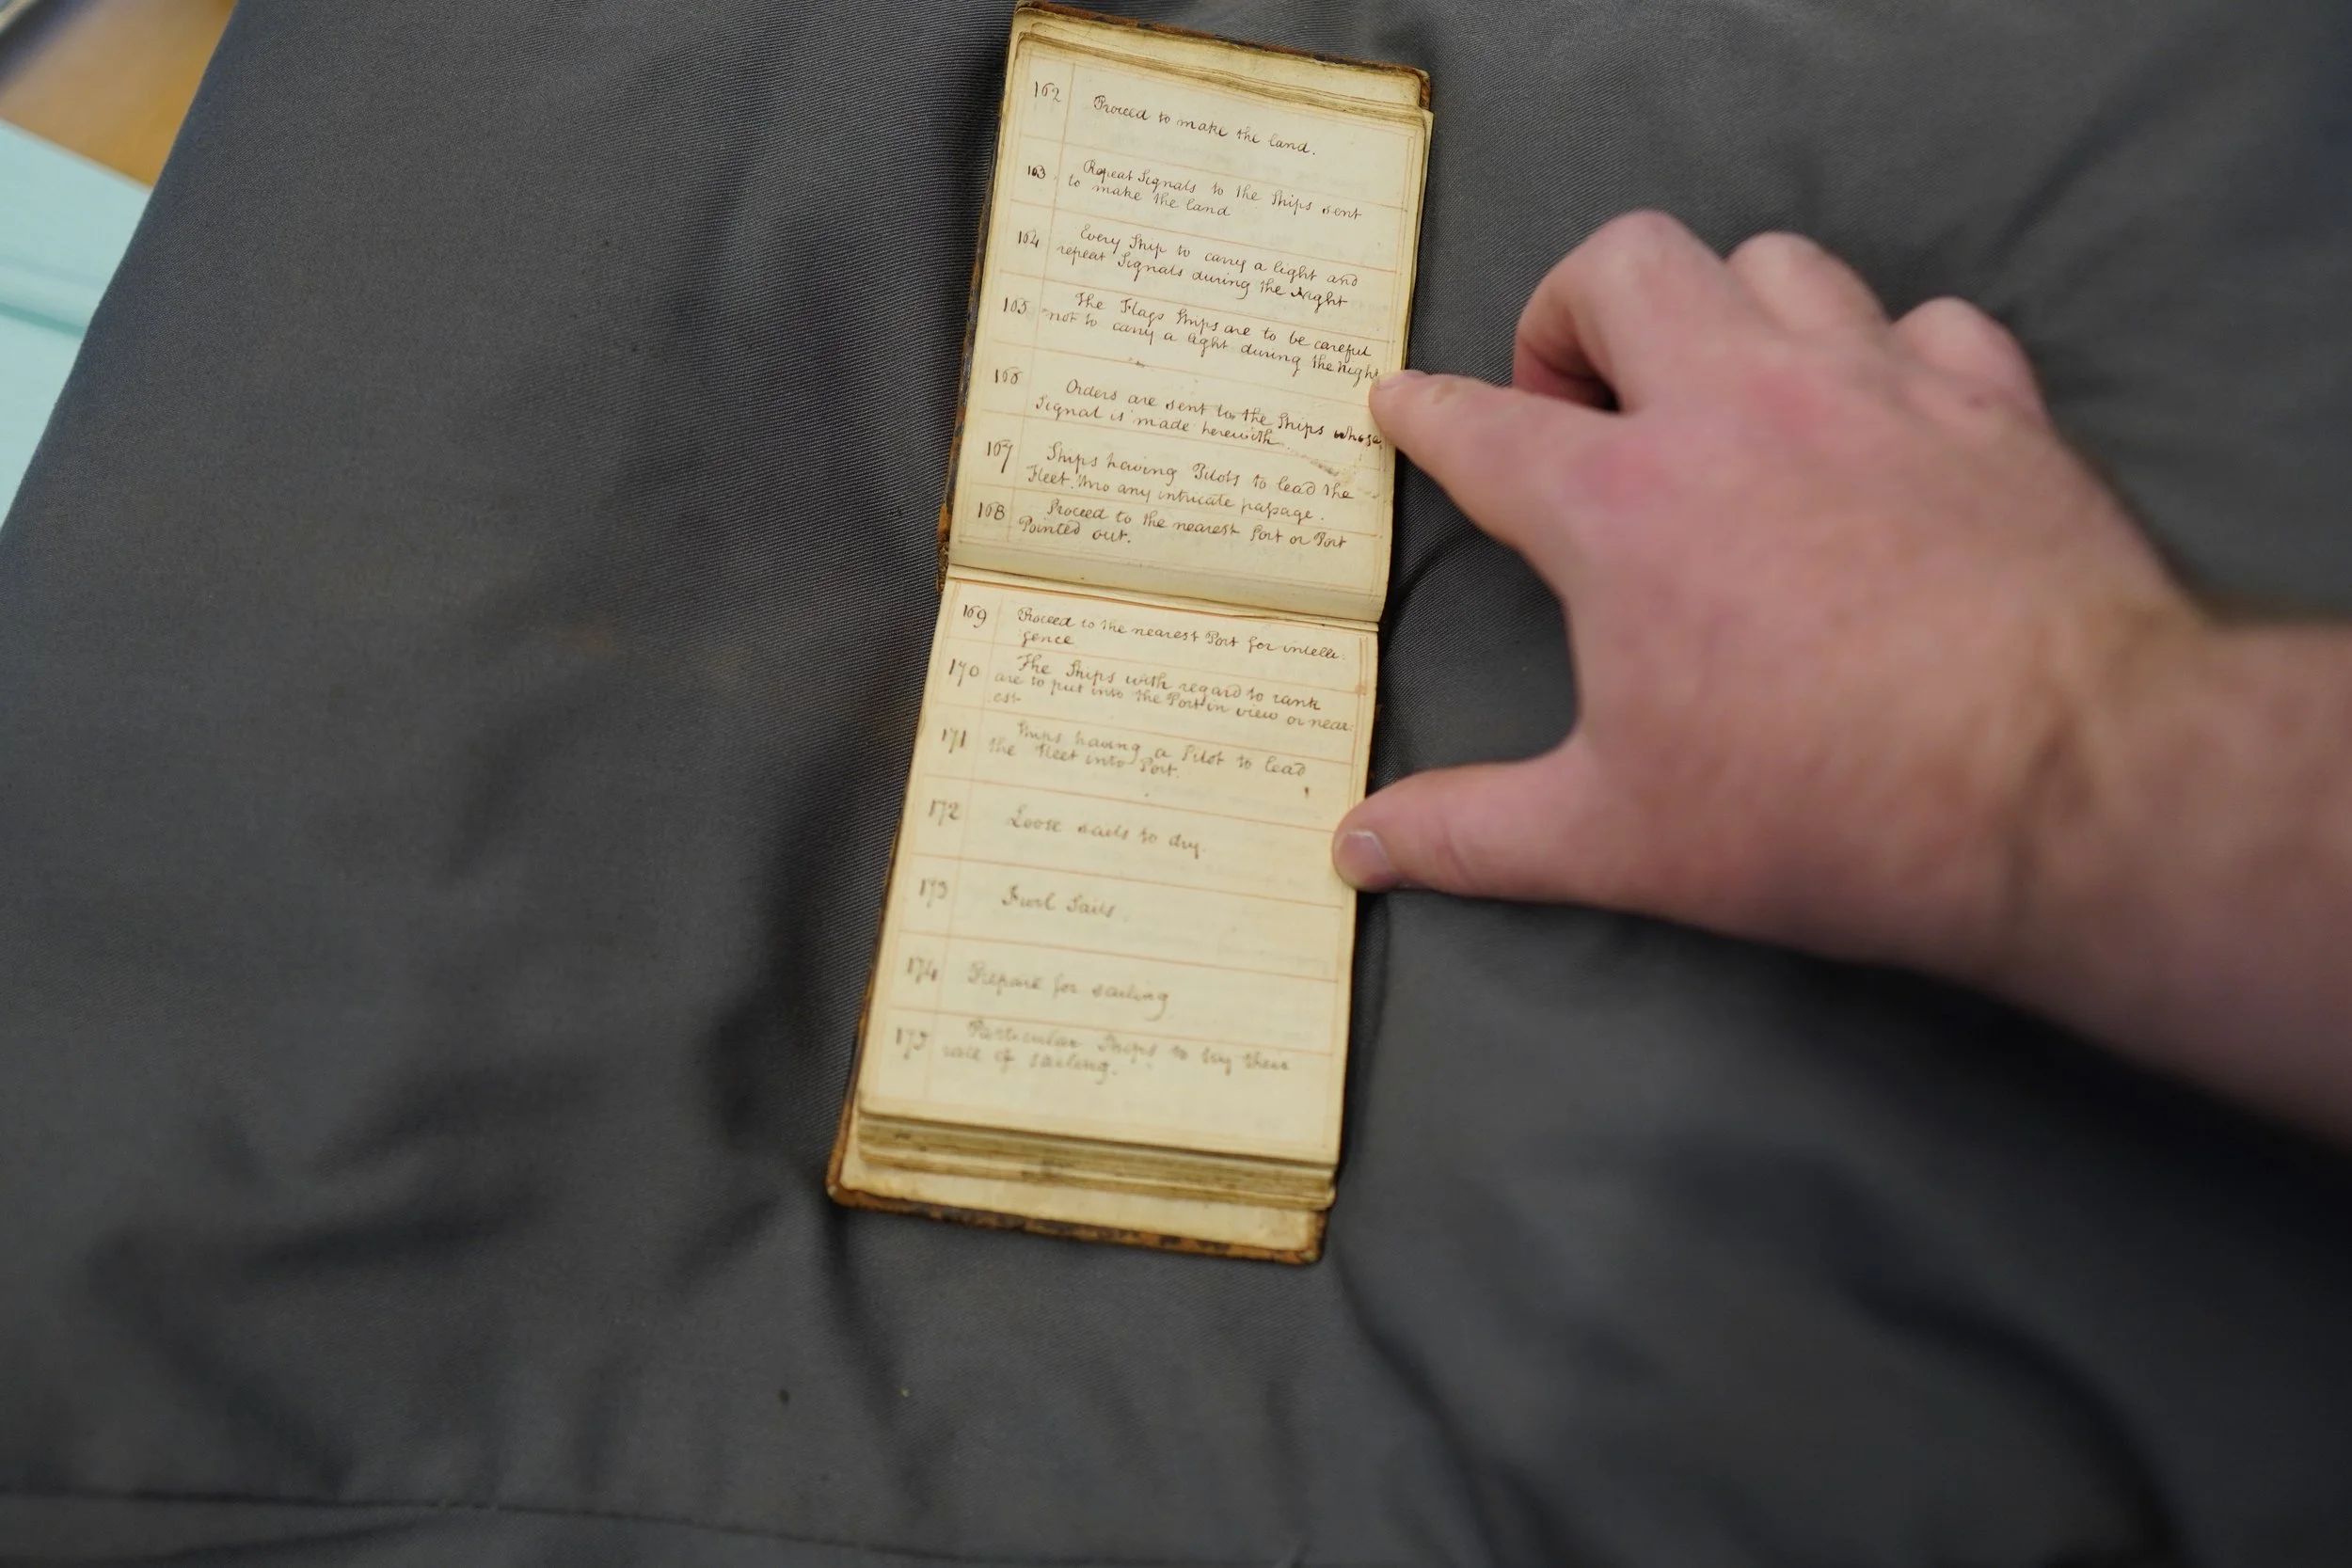 162 Proceed to make the land.
163 Repeat Signals to the Ships sent
to make the land
164 Every Ship to carry a light and
repeat Signals during the Night
165 The Flags Ships are to be careful
not to carry a light during the Night
166 Orders are sent to the Ships whose
Signal is made herewith
167 Ships having Pilots to lead the
Fleet into any intricate passage.
168 Proceed to the nearest Port or Port
Pointed out.
169 Proceed to the nearest Port for intelli:
gence
170 The Ships with regard to rank
are to put into the Port in view or near:
est
171 Ships having a Pilot to lead
the Fleet into Port.
172 Loose sails to dry.
173 Furl Sails
174 Prepare for sailing
175 Particular Ships to try their
rate of sailing.